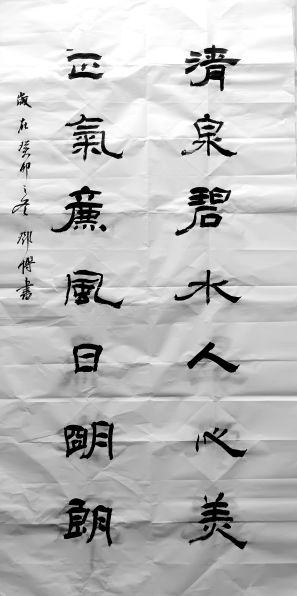 清泉碧水人心美
正氣廉風日朗朗
歲在癸卯之冬 邵博書